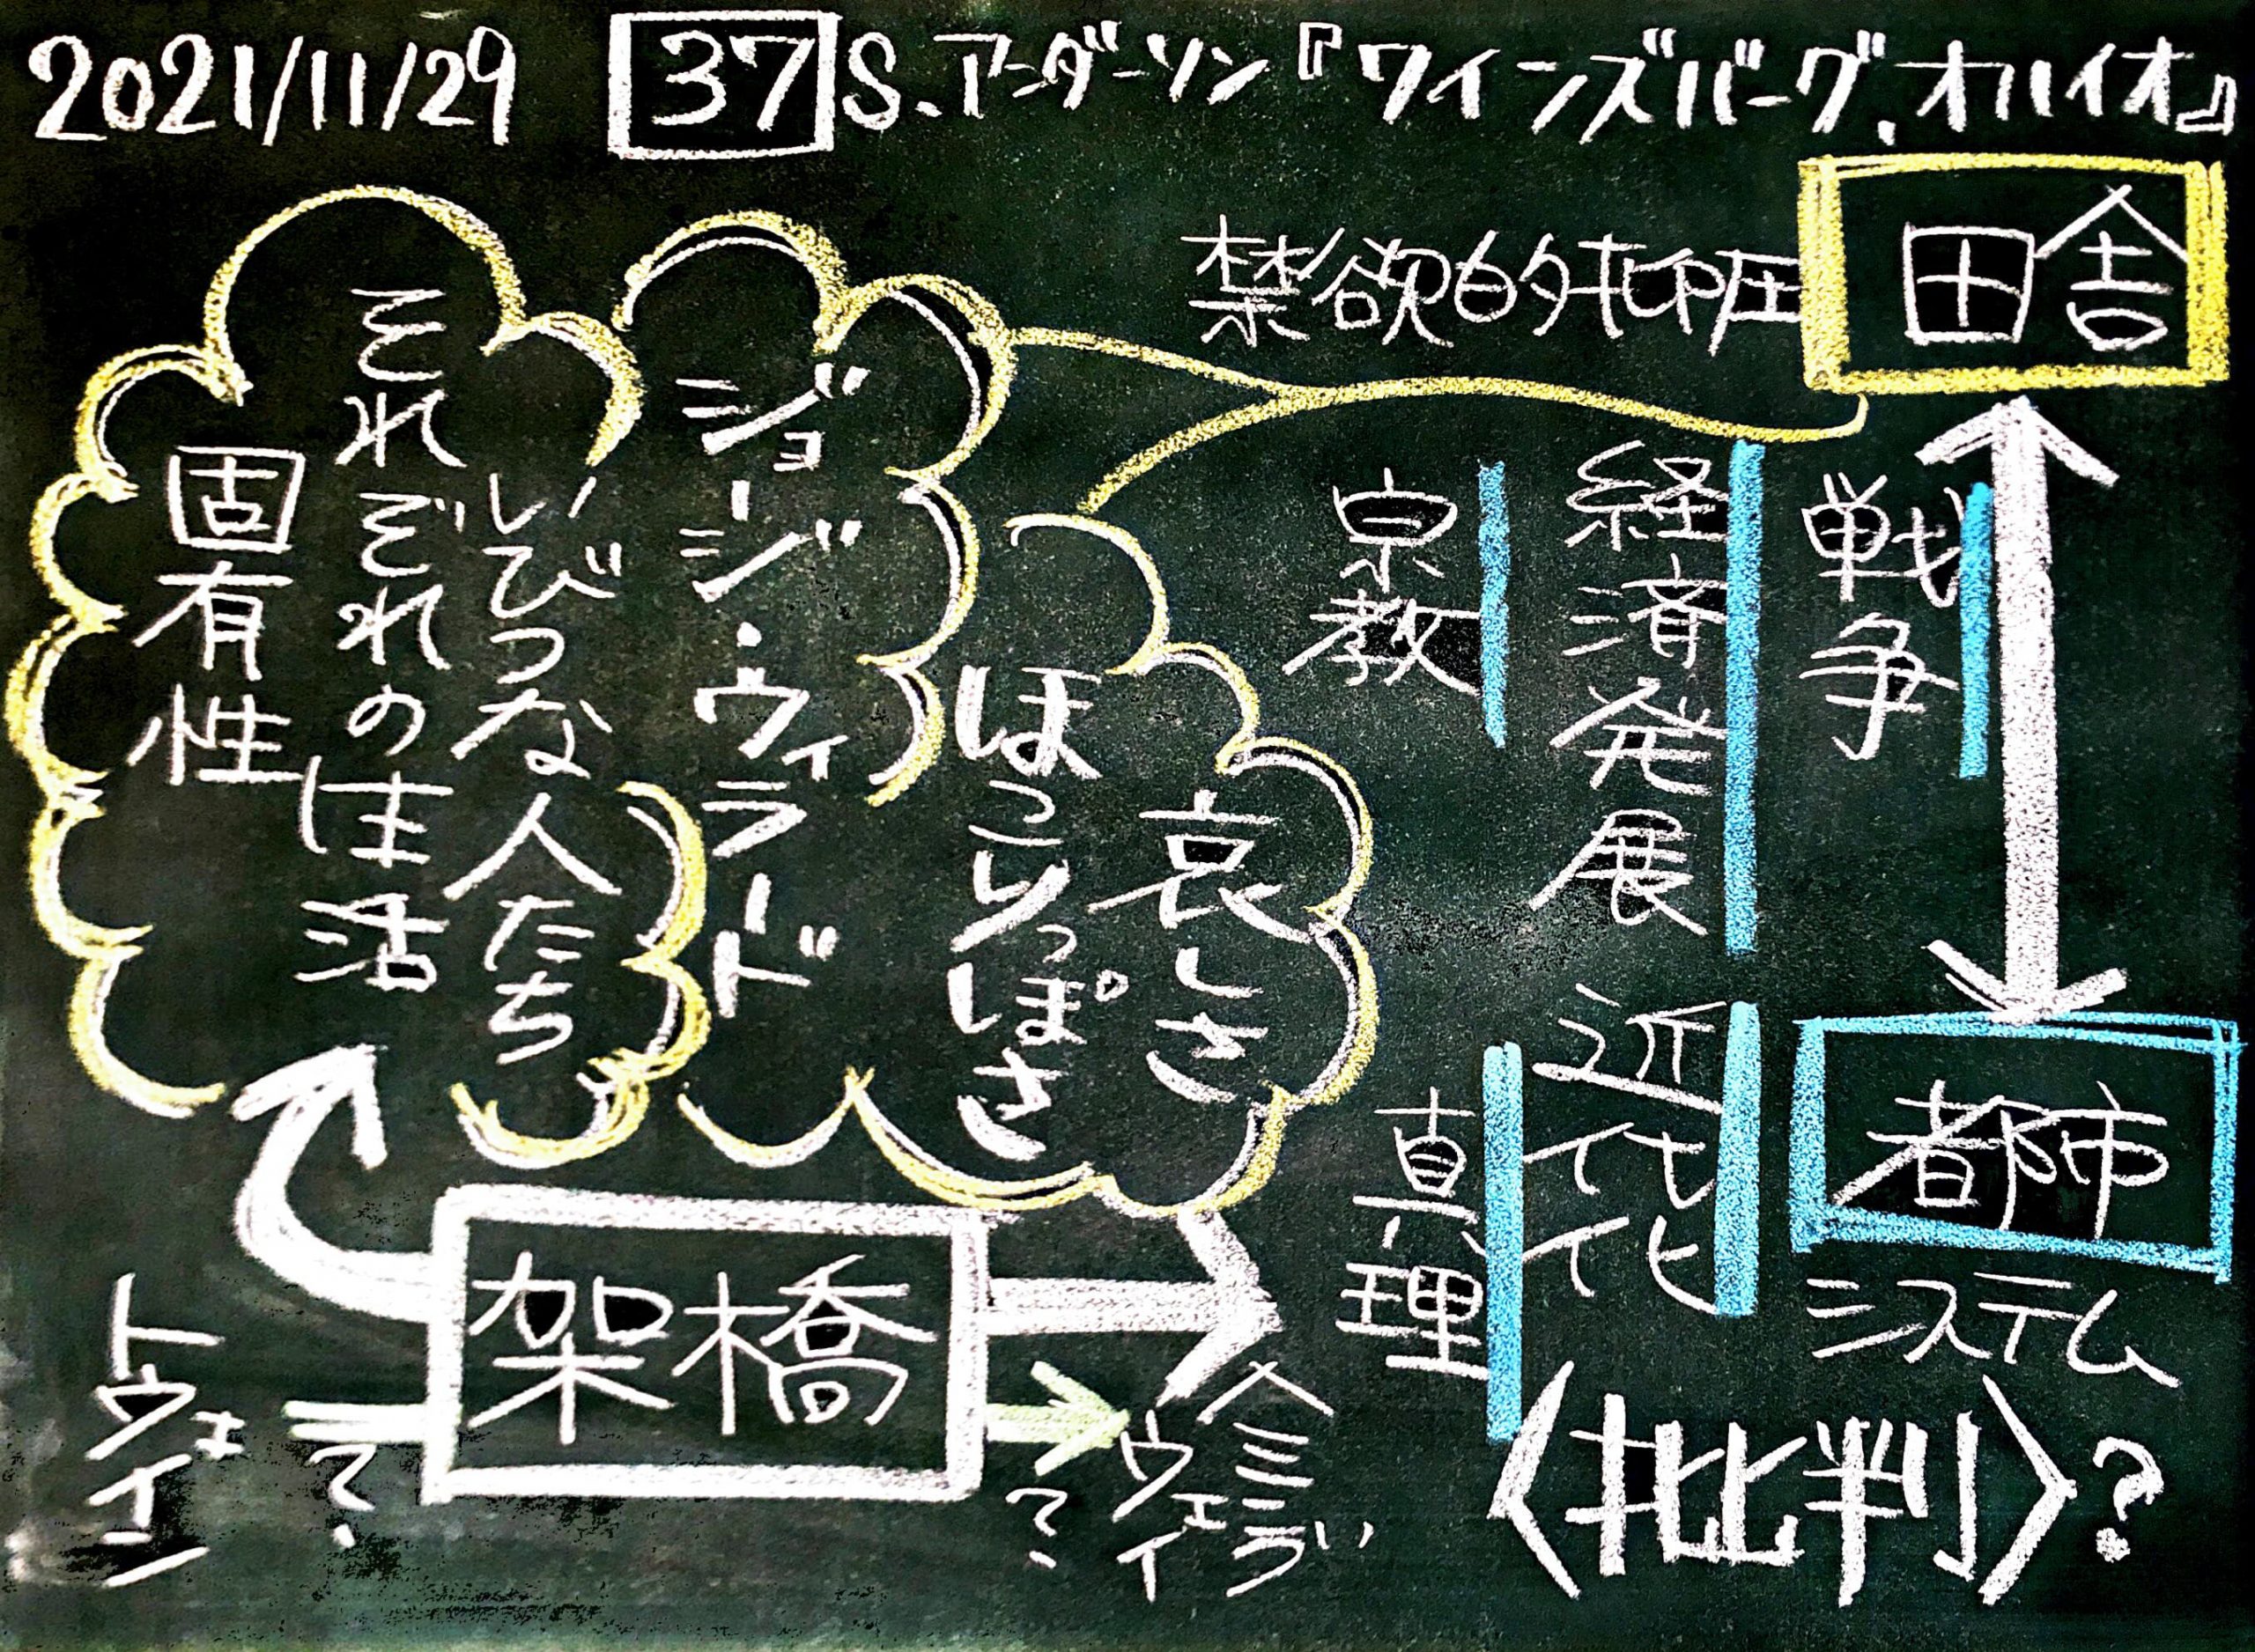 2021/11/29 37 S.アーダーソン『ワインズバーグ、オハイオ』
田舎
禁欲的抑圧
戦争
経済発展
宗教
都市
システム
近代化
真理
〈批判〉?
哀しさ
ほこりっぽさ
ジョージ・ウィラード
いびつな人たち
それぞれの生活
固有性
架橋
トウェイン
?
?
ヘミング
ウェイ